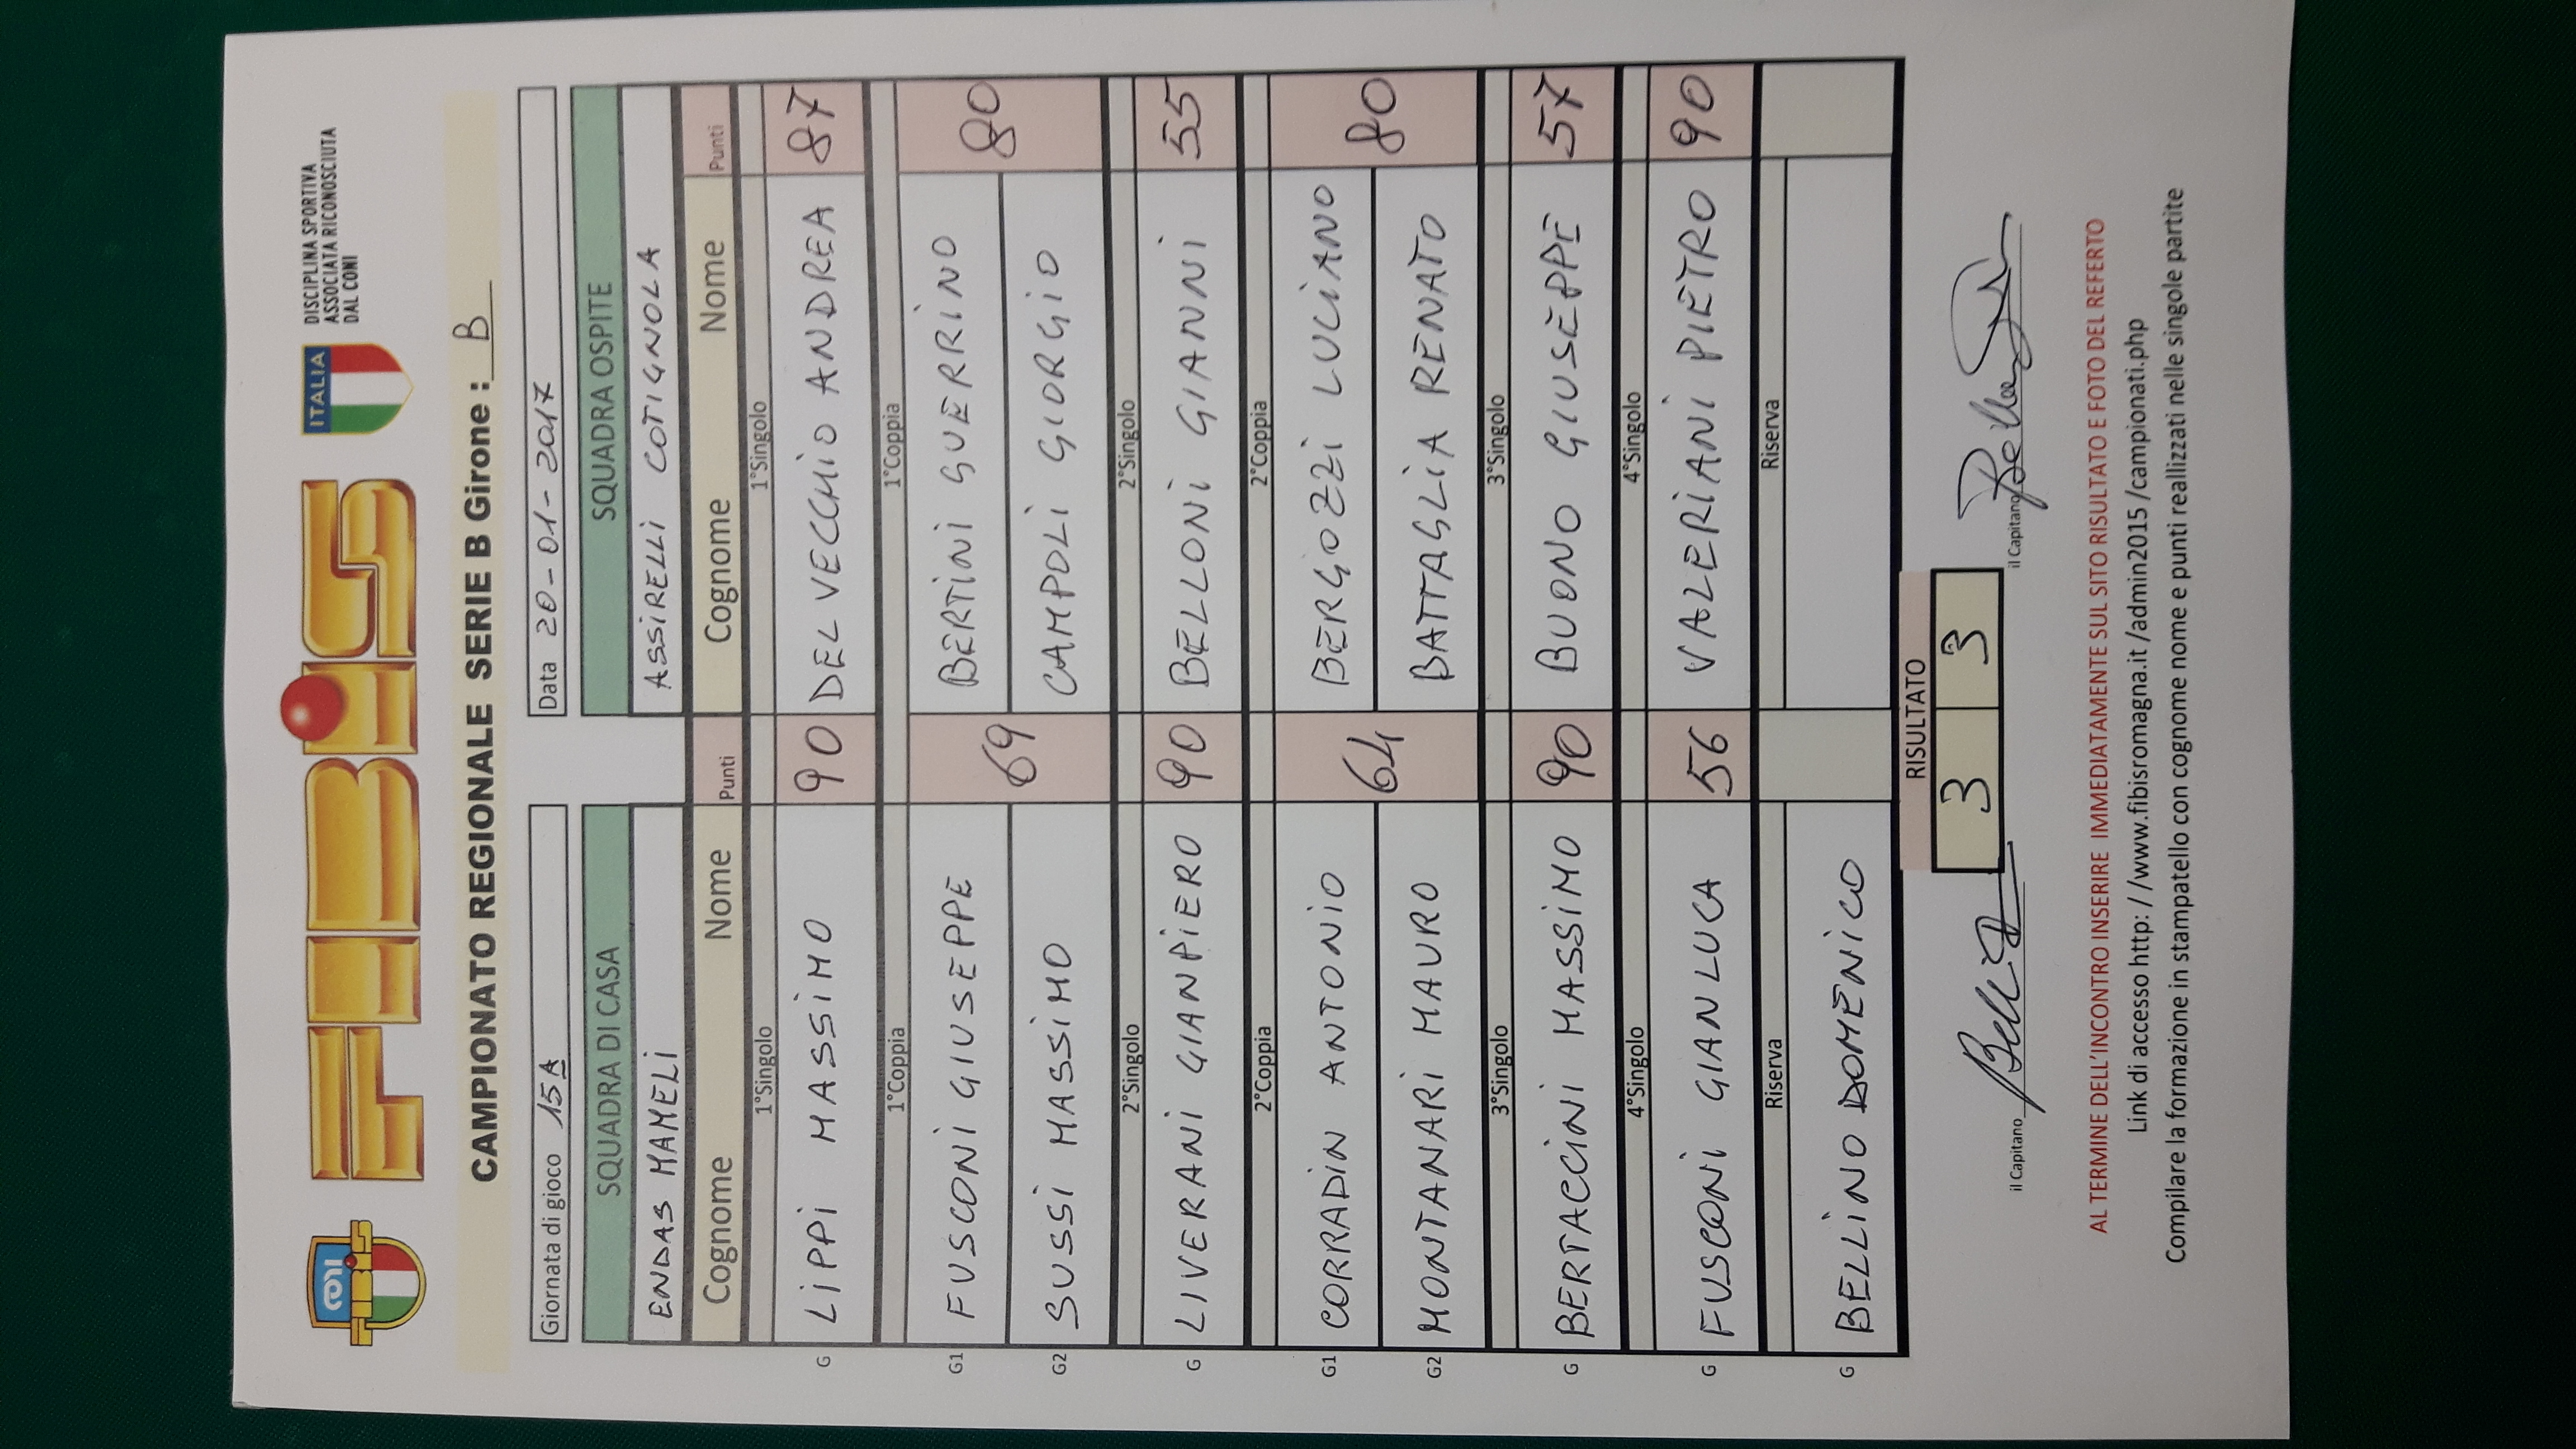 FIBiS
ITALIA
DISCIPLINA SPORTIVA
ASSOCIATA RICONOSCIUTA
DAL CONI
CAMPIONATO REGIONALE SERIE B Girone : B
Giornata di gioco 15A Data 20-01-2017
SQUADRA DI CASA SQUADRA OSPITE
ENDAS MAMELI ASSIRELLI COTIGNOLA
Cognome Nome Punti Cognome Nome Punti
1°Singolo 1°Singolo
G LIPPI MASSIMO 90 DEL VECCHIO ANDREA 87
1°Coppia 1°Coppia
G1 FUSCONI GIUSEPPE 69 BERTINI GUERRINO 80
G2 SUSSI MASSIMO CAMPOLI GIORGIO
2°Singolo 2°Singolo
G LIVERANI GIANPIERO 90 BELLONI GIANNI 55
2°Coppia 2°Coppia
G1 CORRADIN ANTONIO 64 BERGOZZI LUCIANO 80
G2 MONTANARI MAURO BATTAGLIA RENATO
3°Singolo 3°Singolo
G BERTACCINI MASSIMO 90 BUONO GIUSEPPE 57
4°Singolo 4°Singolo
G FUSCONI GIANLUCA 56 VALERIANI PIETRO 90
Riserva Riserva
G BELLINO DOMENICO
RISULTATO
3 3
il Capitano il Capitano
AL TERMINE DELL'INCONTRO INSERIRE IMMEDIATAMENTE SUL SITO RISULTATO E FOTO DEL REFERTO
Link di accesso http: / /www.fibisromagna.it /admin2015 /campionati.php
Compilare la formazione in stampatello con cognome nome e punti reallizzati nelle singole partite